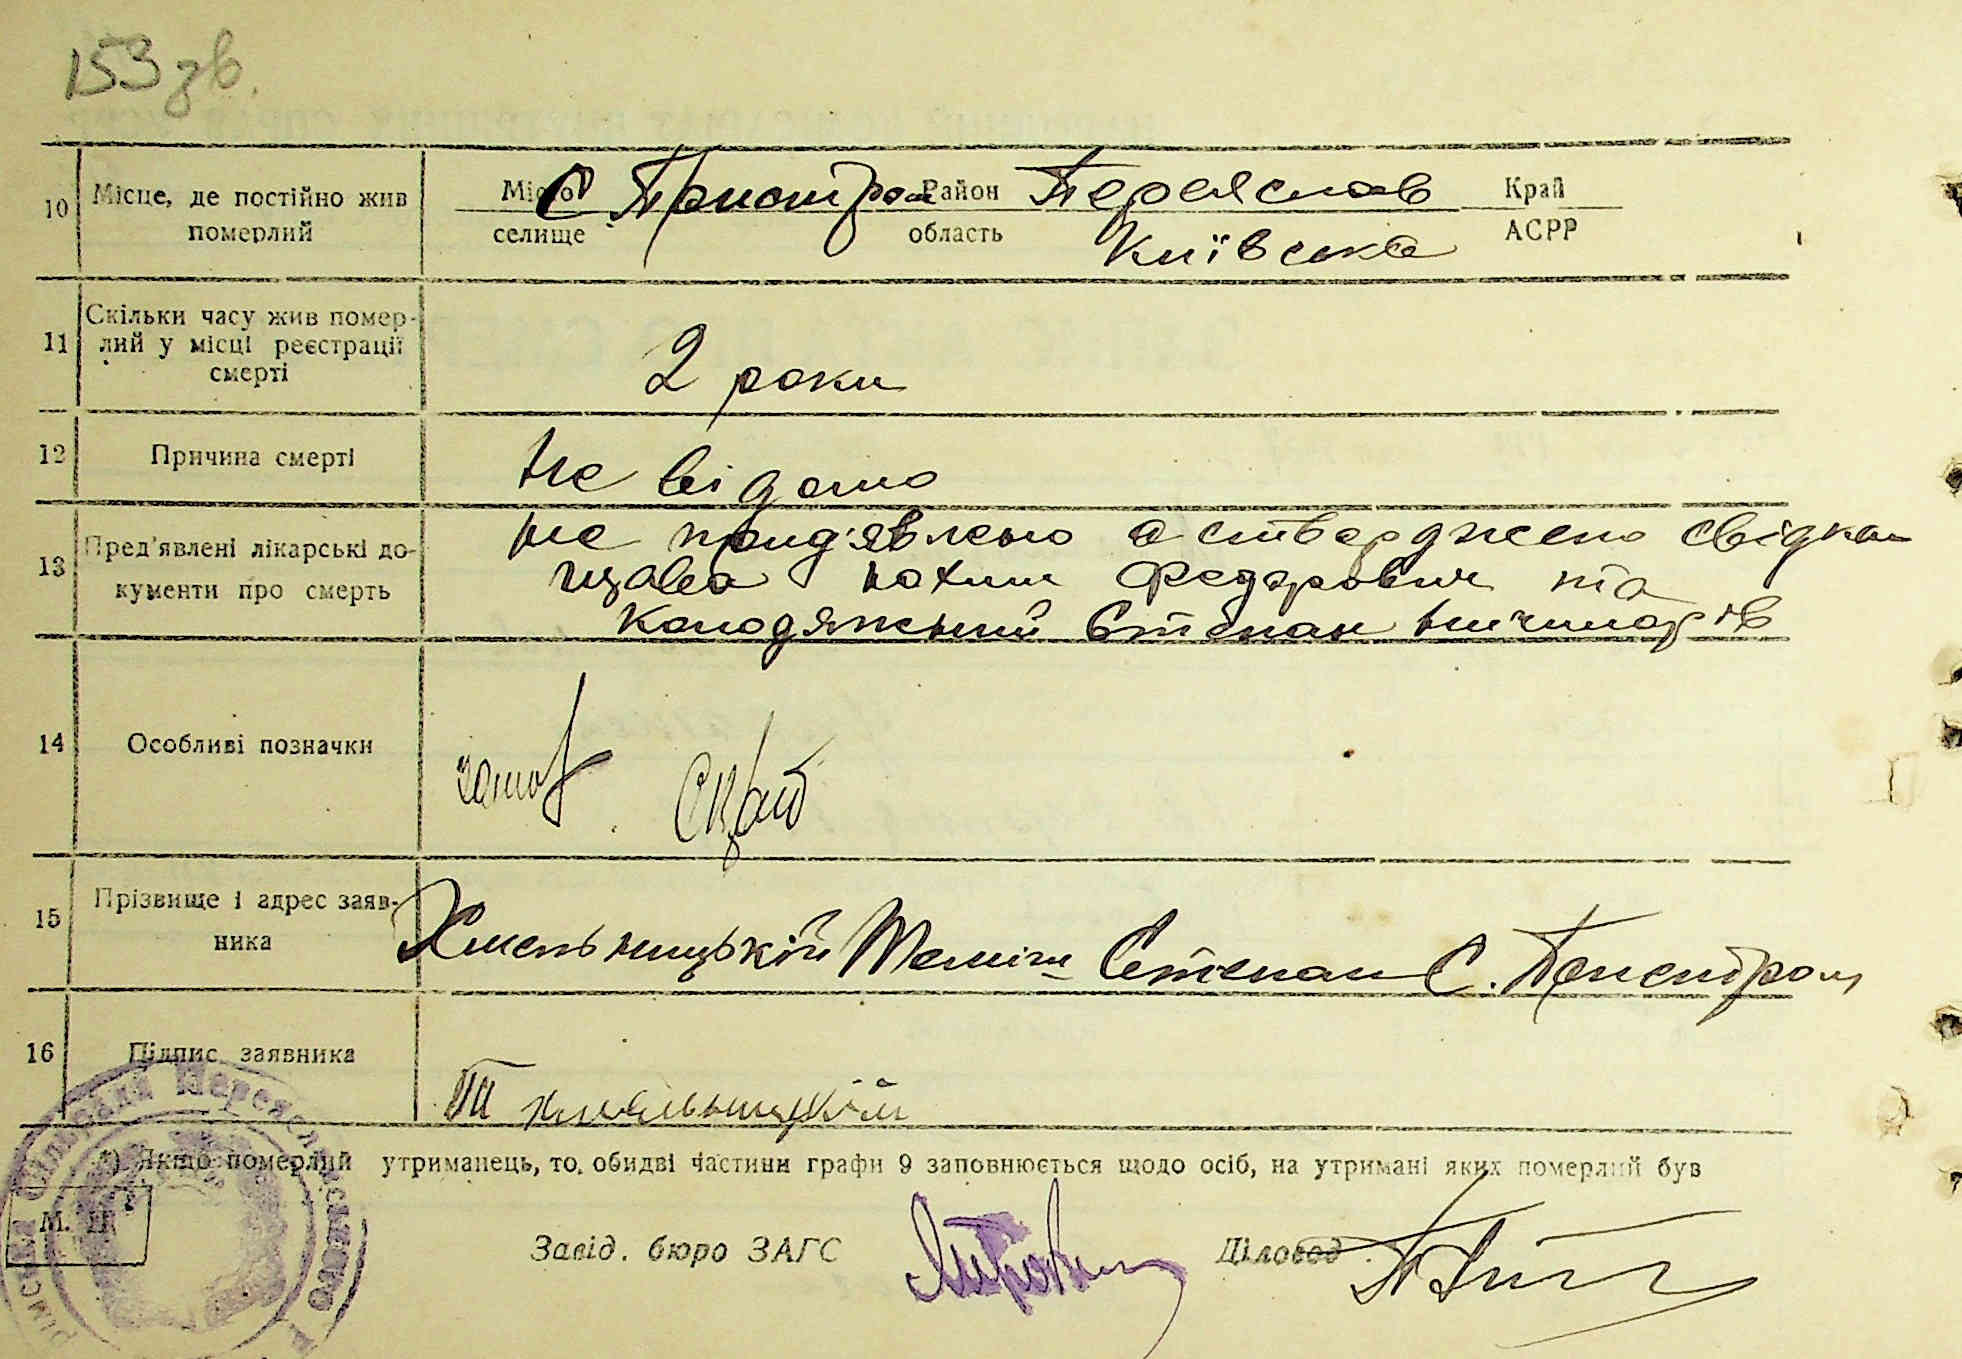 153 зв.
10 Місце, де постійно жив померлий
Місто С Пристром Район Переяслав Край
селище область Київська АСРР
11 Скільки часу жив помер-
лий у місці реєстрації
смерті
2 роки
12 Причина смерті
Не відомо
13 Пред'явлені лікарські до-
кументи про смерть
не пред'явлено а стверджено свідками
Федорович та
Колодяжний Степан
14 Особливі позначки
15 Прізвище і адрес заяв-
ника
Хмельницькій Степан С. Пристром
16 Підпис заявника
Т Хмельницкій
*) Якщо померлий утриманець, то обидві частини графи 9 заповнюється щодо осіб, на утримані яких померлий був
М. П.
Завід. бюро ЗАГС Діловод